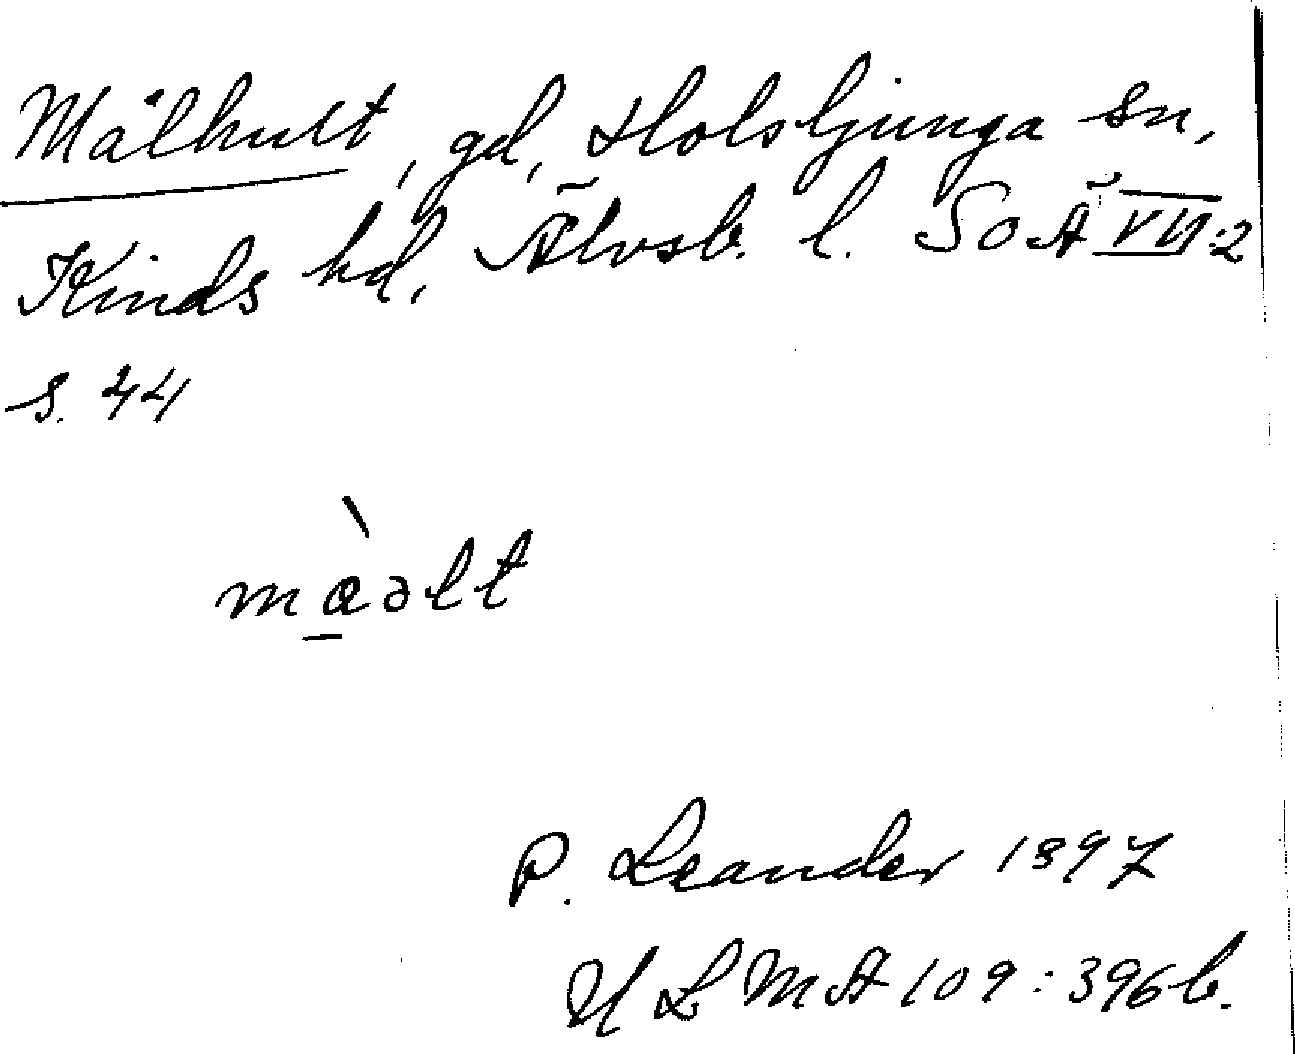 Målhult, gd, Holsljunga sn,
Kinds hd, Älvsb. l. SOÄ VII:2
s. 44
màəlt
P. Leander 1897
ULMA 109:396b.